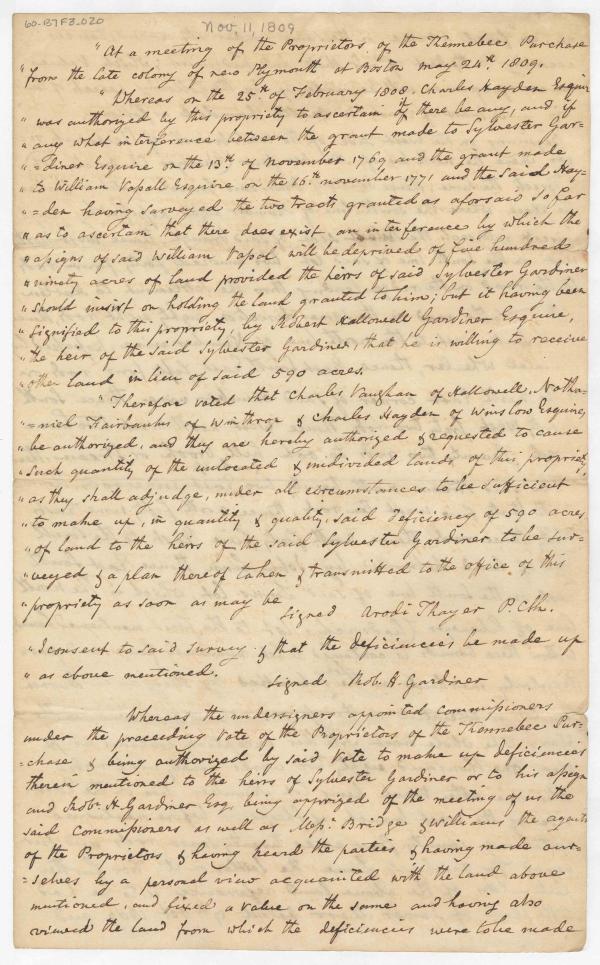 60-B7F3-020
Nov. 11, 1809
"At a meeting of the Proprietors of the Kennebec Purchase
"from the late colony of new Plymouth at Boston may 24th. 1809.
"Whereas on the 25th of February 1808. Charles Hayden Esquire
"was authorized by this propriety to ascertain if there be any, and if
"any what interference between the grant made to Sylvester Gar=
"=diner Esquire on the 13th. of november 1769 and the grant made
"to William Vapall Esquire on the 16th november 1771 and the said Hay=
"=den having surveyed the two tracts granted as aforsaid so far
"as to ascertain that there does exist an interference by which the
"assigns of said William Vapal will be deprived of five hundred
"ninety acres of land provided the heirs of said Sylvester Gardiner
"should insist on holding the land granted to him; but it having been
"signified to this propriety, by Robert Hallowell Gardiner Esquire,
"the heir of the said Sylvester Gardiner, that he is willing to receive
"other land in lieu of said 590 acres.
"Therefore voted that Charles Vaughan of Hallowell, Natha=
"=niel Fairbanks of Winthrop & Charles Hayden of Winslow Esquires,
"be authorized, and they are hereby authorized & requested to cause
"such quantity of the unlocated & undivided lands of this propriety,
"as they shall adjudge, under all circumstances to be sufficient
"to make up, in quantity & quality, said deficiency of 590 acres
"of land to the heirs of the said Sylvester Gardiner to be sur=
"veyed & a plan thereof taken & transmitted to the office of this
"propriety as soon as may be
signed Arodi Thayer P. Clk.
"I consent to said survey & that the deficiencies be made up
"as above mentioned.
signed Rob. H. Gardiner
Whereas the undersigners appointed commissioners
under the preceeding vote of the Proprietors of the Kennebec Pur=
=chase & being authorized by said vote to make up deficiencies
therein mentioned to the heirs of Sylvester Gardiner or to his assigns
and Robt. H. Gardiner Esq. being apprized of the meeting of us the
said commissioners as well as Messrs. Bridge & Williams the agents
of the Proprietors & having heard the parties & having made our=
=selves by a personal view acquainted with the land above
mentioned, and fixed a value on the same and having also
viewed the land from which the deficiencies were to be made